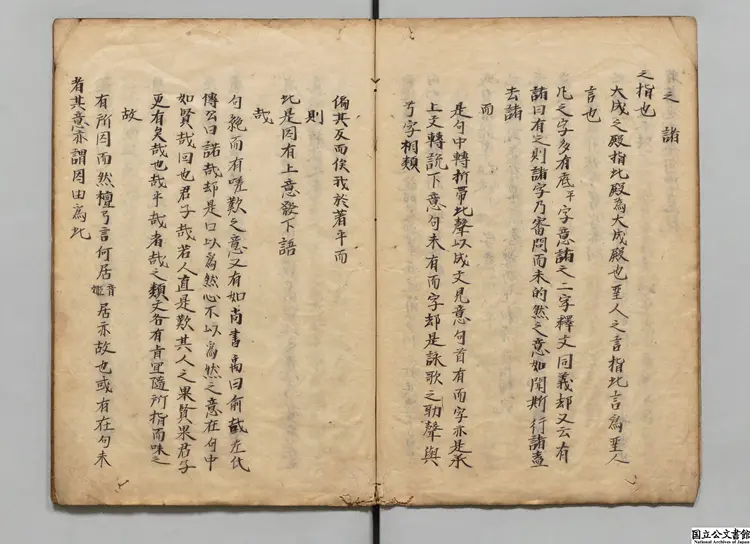 之 諸
之指也
大成之殿指此殿為大成殿也至人之言指此言為至人
言也
凡之字多有底平字意諸之二字釋文同義却又云有
諸曰有之則諸字乃審問而未的然之意如聞斯行諸盍
去諸
而
是句中轉折帶此聲以成文見意句首有而字亦是承
上文轉説下意句未有而字却是詠歌之助聲與
兮字相類
偏其反而俟我於著乎而
則
此是因有上意發下語
哉
句絶而有嗟歎之意又有如尚書禹曰俞哉左氏
傳公曰諾哉却是口以為然心不以為然之意在句中
如賢哉回也君子哉若人直是歎其人之果賢果君子
更有矣哉也哉乎哉者哉之類文各有旨宜隨所指而味之
故
有所因而然檀弓言何居音姬居亦故也或有在句末
者其意亦謂因由為此
国立公文書館
National Archives of Japan